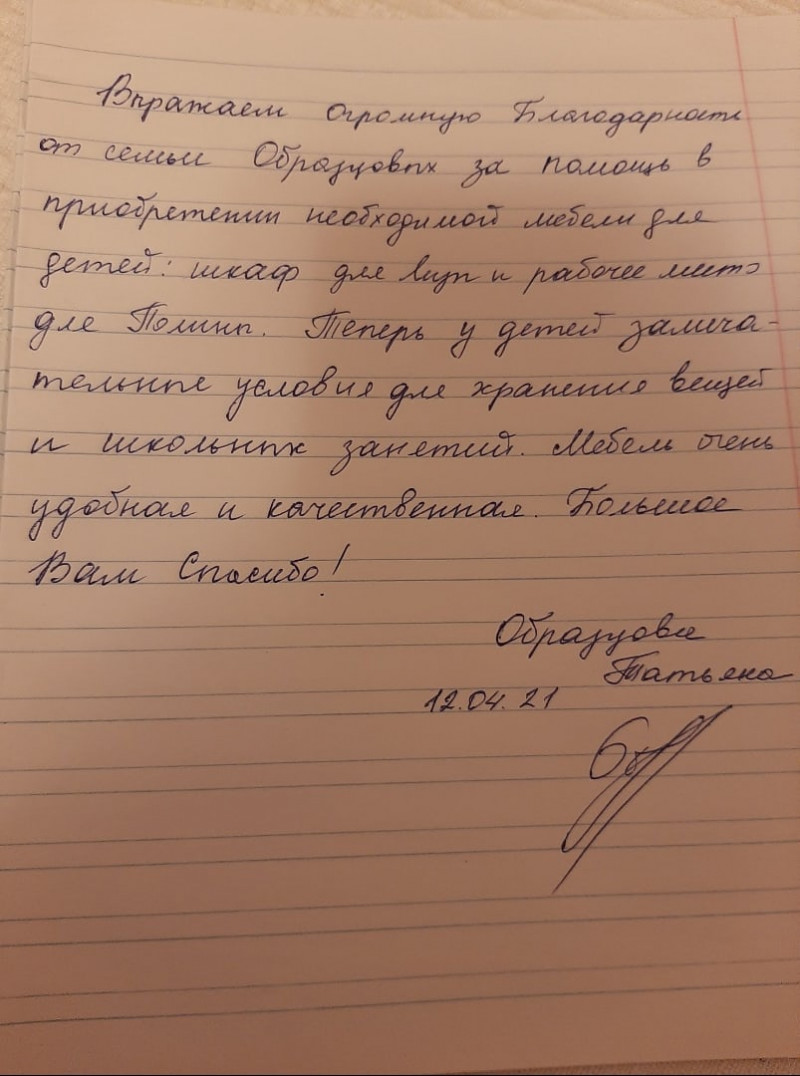 Выражаем огромную Благодарность
от семьи Образцовых за помощь в
приобретении необходимой мебели для
детей: шкаф для и рабочее место
для Полины. Теперь у детей замеча-
тельные условия для хранения вещей
и школьных занятий. Мебель очень
удобная и качественная. Большое
Вам Спасибо!
Образцова
Татьяна
12.04.21